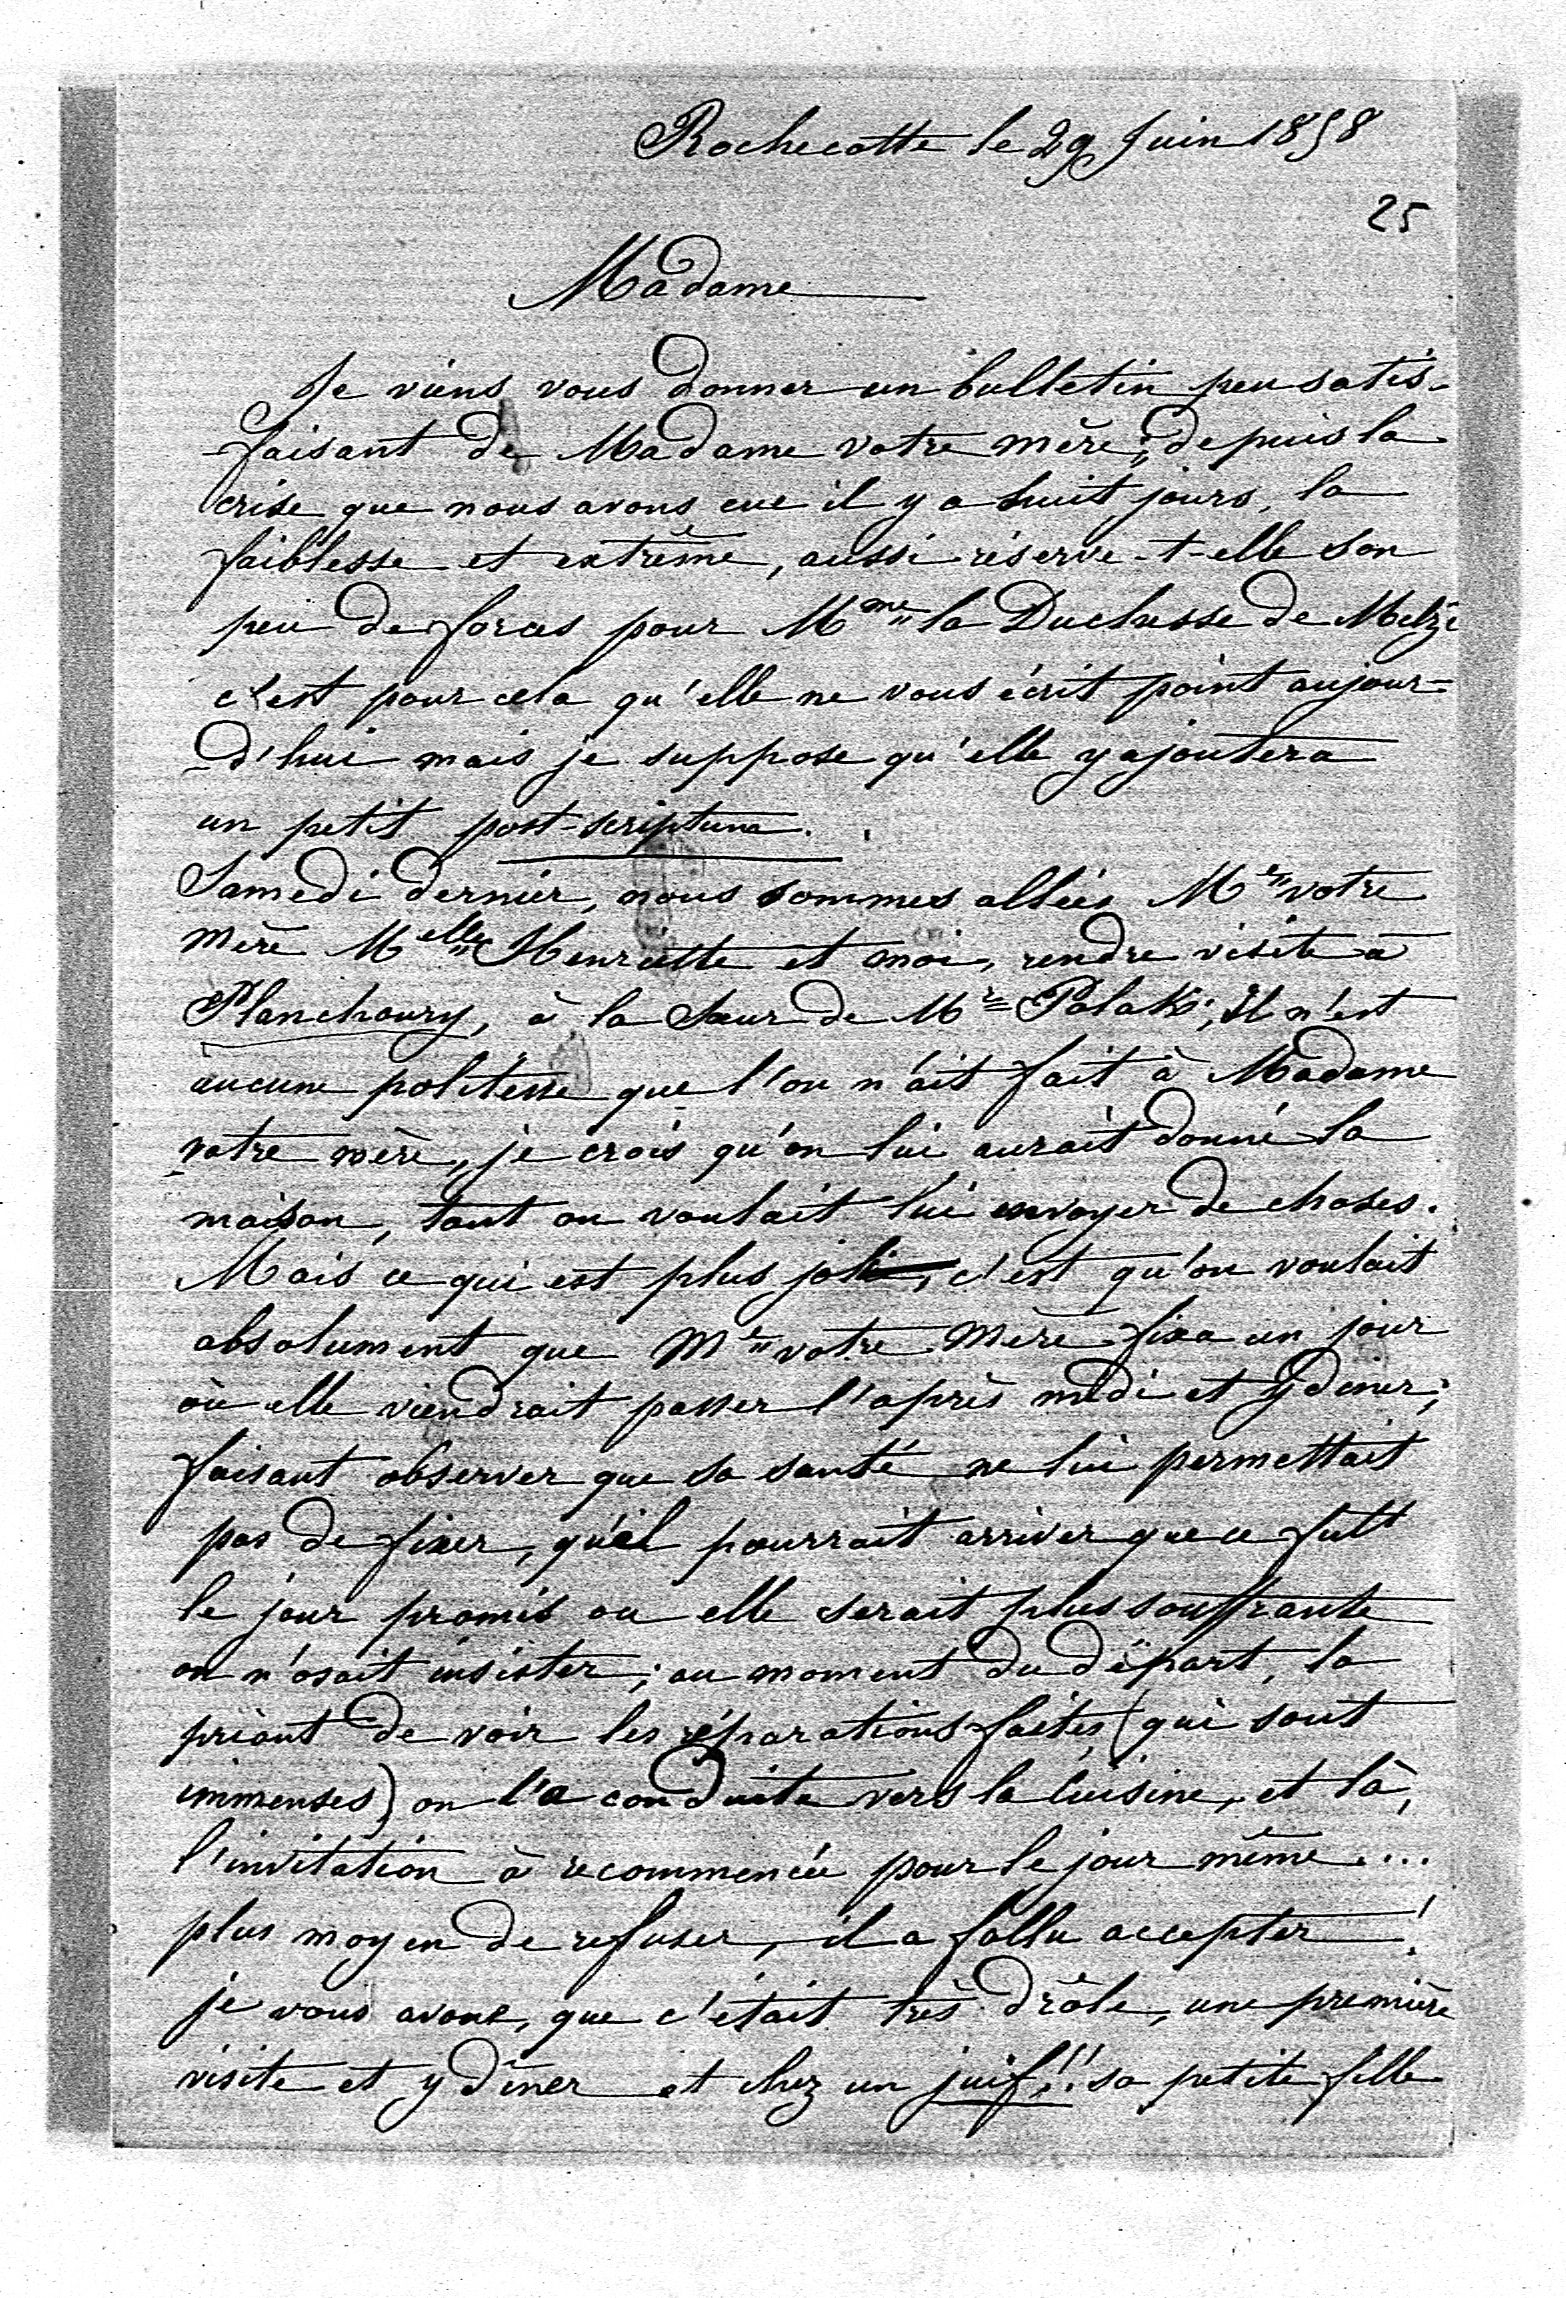 Rochecotte le 29 Juin 1858
25
Madame
Je viens vous donner un bulletin peu satis-
-faisant de Madame votre mère; depuis la
crise que nous avons eue il y a huit jours, la
faiblesse et extrême, aussi réserve-t-elle son
peu de forces pour Mme la Duchesse de Melzi
c'est pour cela qu'elle ne vous écrit point aujour=
-d'hui mais je suppose qu'elle y ajoutera
un petit post-scriptum.
Samedi dernier, nous sommes allées Me votre
mère Melle Henriette et moi, rendre visite à
Planchoury, à la Sœur de Mr ; Il n'est
aucune politesse que l'on n'ait fait à Madame
votre mère, je crois qu'on lui aurait donné la
maison, tant on voulait lui envoyer de choses.
Mais ce qui est plus joli, c'est qu'on voulait
absolument que Me votre Mère fixa un jour
où elle viendrait passer l'après midi et y diner;
faisant observer que sa santé ne lui permettait
pas de fixer, qu'il pourrait arriver que ce futt
le jour promis ou elle serait plus souffrante
on n'osait insister; au moment du départ, la
priant de voir les réparations faites (qui sont
immenses) on l'a conduite vers la Cuisine, et là,
l'invitation à recommencée pour le jour même....
plus moyen de refuser, il a fallu accepter!
je vous avoue, que c'était très drôle, une première
visite et y dîner et chez un juif!!! sa petite fille